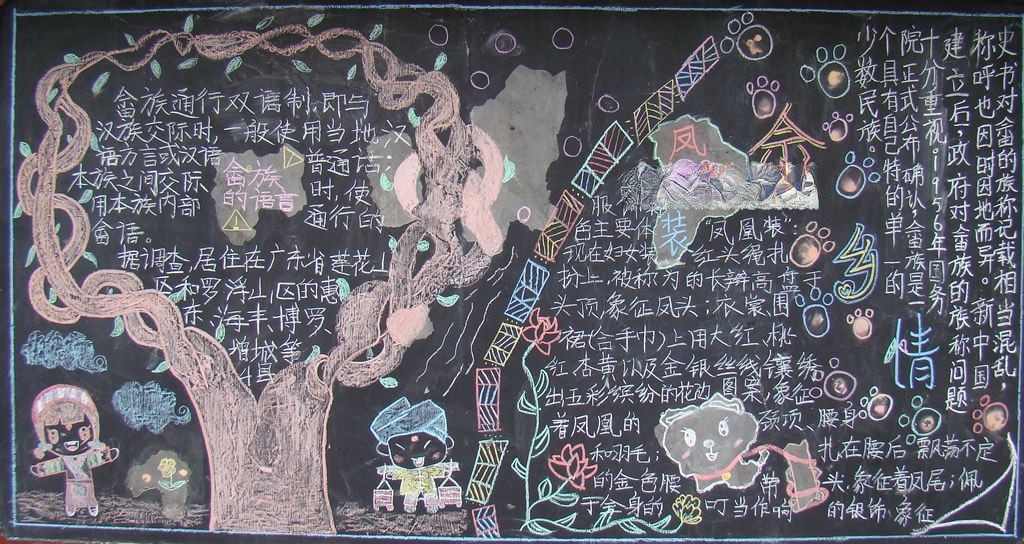 畲族通行双语制,即与
汉族交际时,一般使用当地汉
语方言或汉语普通话;
本族之间交际时,使
用本族内部通行的
畲语。
畲族
的语言
据调查,居住在广东省莲花山
区和罗浮山区的惠
东,海丰,博罗
增城等
4县
凤
装
畲
乡
情
凤凰装:
红头绳扎
的长辫高盘于
头顶,象征凤头;衣裳、围
裙(合手巾)上用大红、桃
红、杏黄以及金银丝线镶绣
出五彩缤纷的花边图案,象征
着凤凰的颈项、腰身
和羽毛;扎在腰后飘荡不定
的金色腰带头,象征着凤尾;佩
于全身的叮当作响的银饰,象征
史书对畲的族称记载相当混乱,
称呼也因时因地而异。新中国
建立后,政府对畲族的族称问题
十分重视,1956年国务
院正式公布确认,畲族是一
个具有自己特的单一的
少数民族。